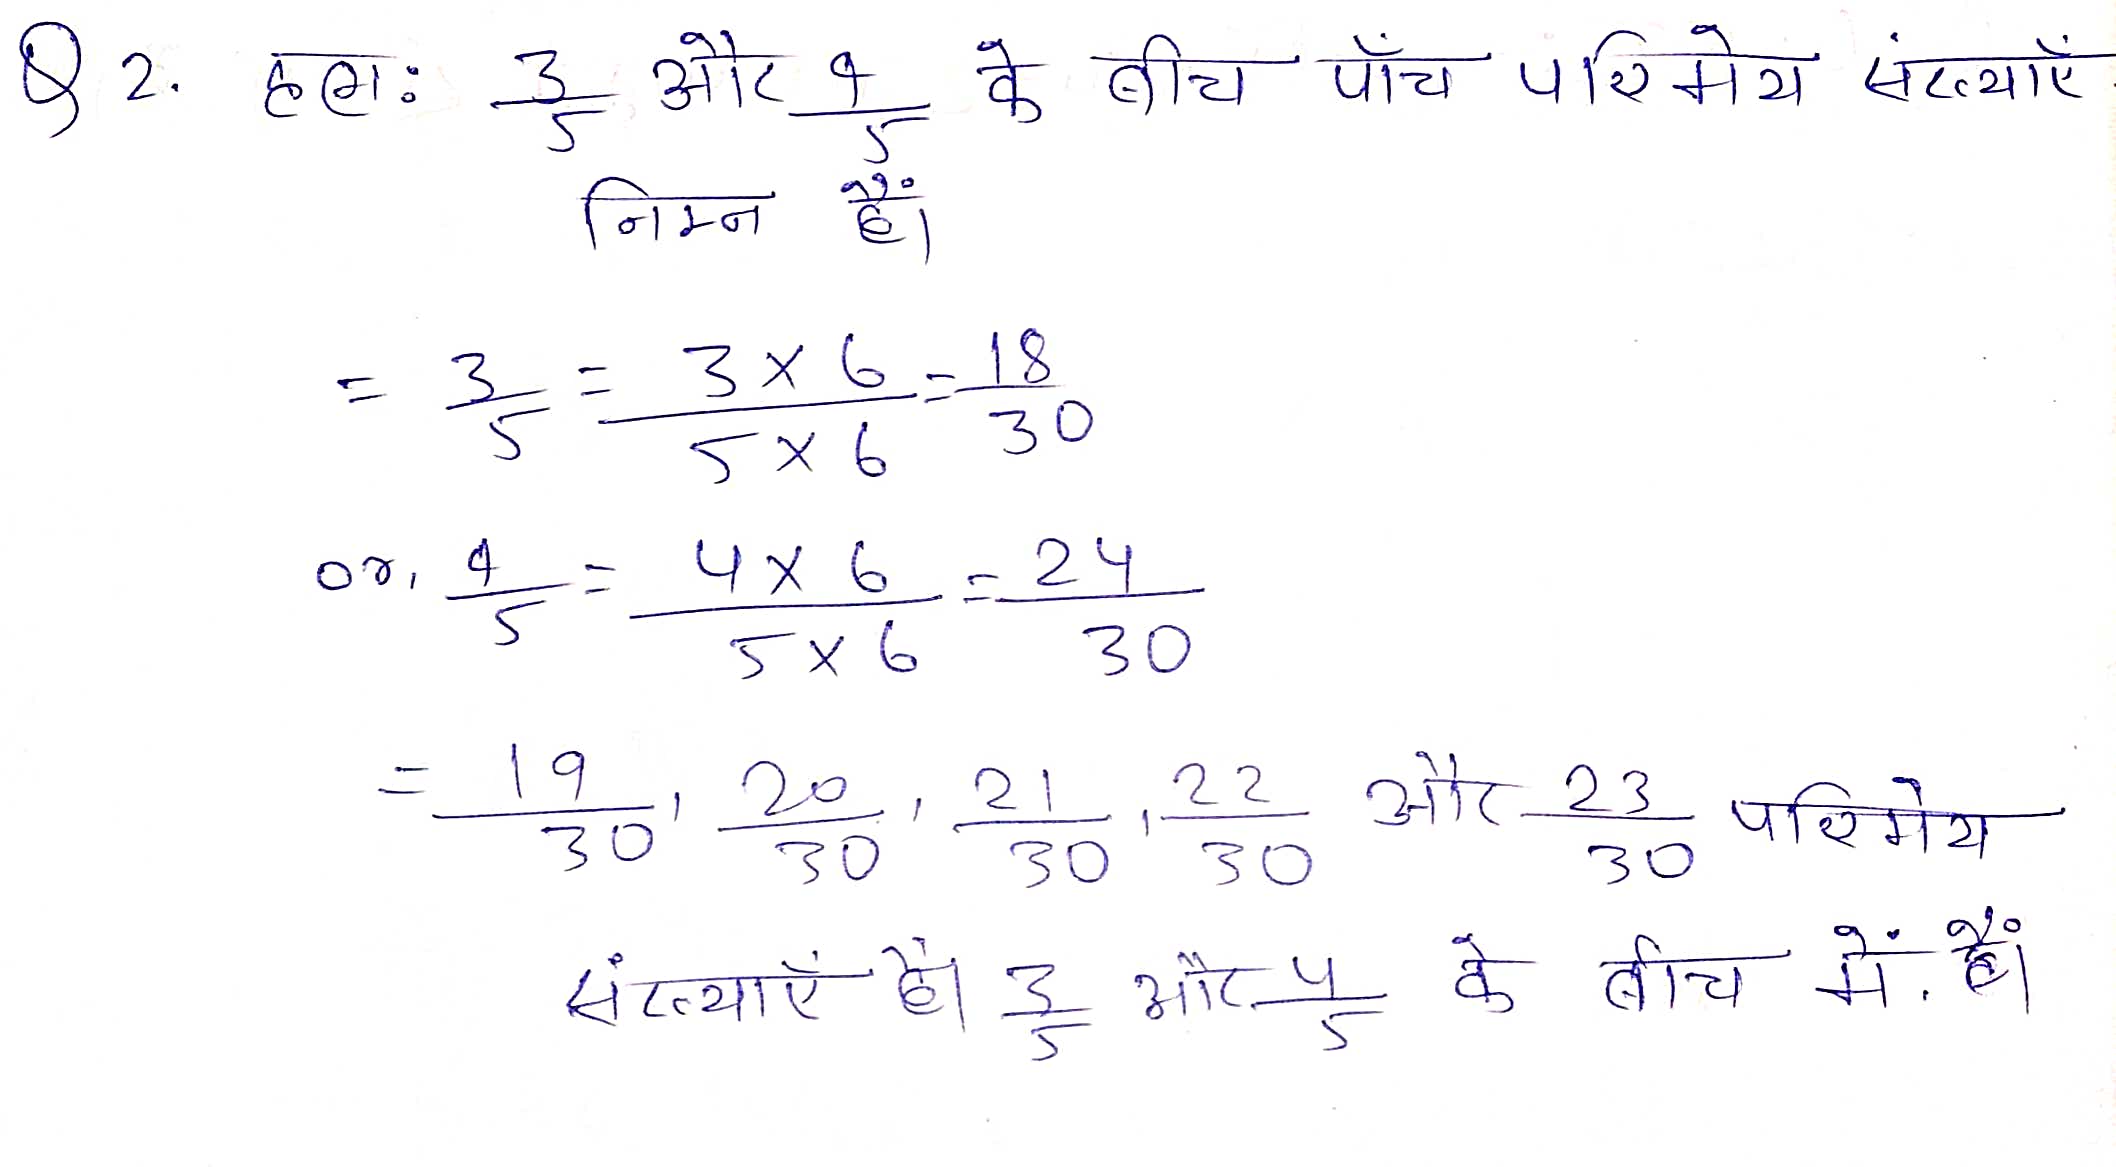 Q 2. हल: 3/5 और 4/5 के बीच पाँच परिमेय संख्याएँ
निम्न हैं।
= 3/5 = 3 × 6 / 5 × 6 = 18/30
or, 4/5 = 4 × 6 / 5 × 6 = 24/30
= 19/30, 20/30, 21/30, 22/30 और 23/30 परिमेय
संख्याएँ हैं। 3/5 और 4/5 के बीच में. हैं।